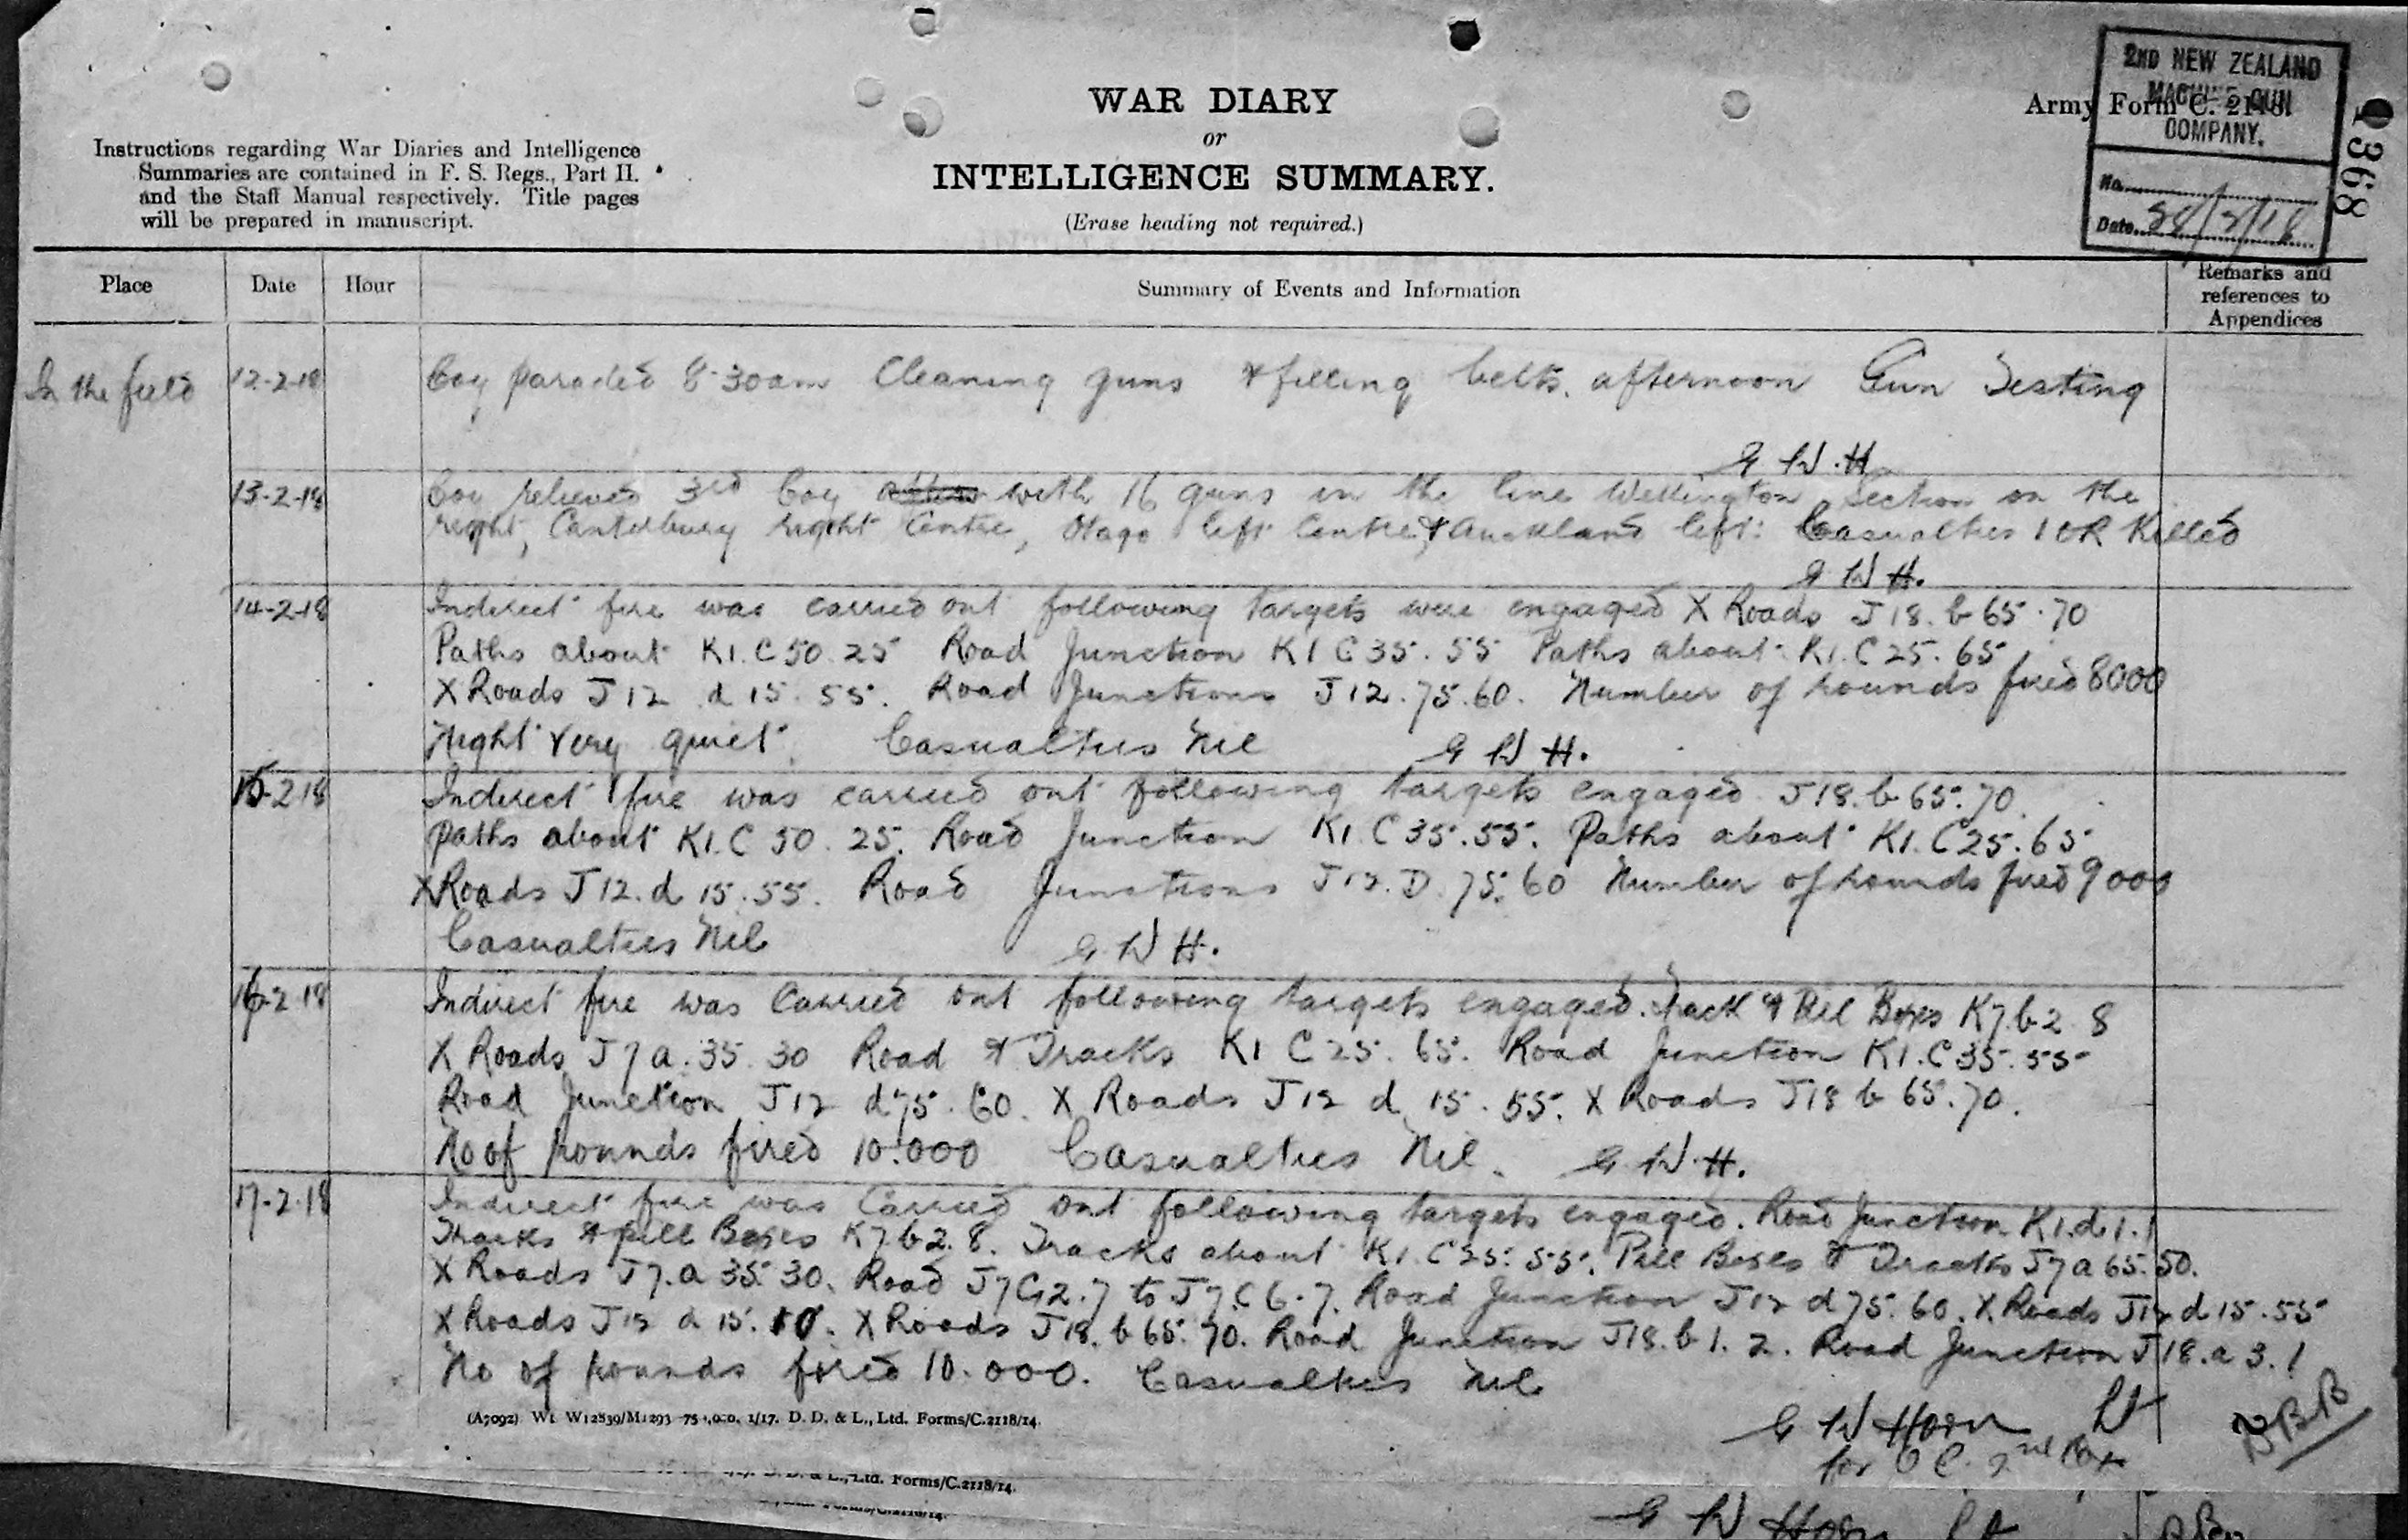 WAR DIARY
or
INTELLIGENCE SUMMARY.
(Erase heading not required.)
Instructions regarding War Diaries and Intelligence
Summaries are contained in F. S. Regs., Part II.
and the Staff Manual respectively. Title pages
will be prepared in manuscript.
Army Form C. 2118.
2ND NEW ZEALAND
MACHINE GUN
COMPANY.
No.
Date
1368
Place Date Hour Summary of Events and Information Remarks and
references to
Appendices
In the field 12-2-18 Coy paraded 8-30am Cleaning guns & filling belts. afternoon Gun Testing
G W. H.
13-2-18 Coy relieved 3rd Coy with 16 guns in the line Wellington Section on the
right, Canterbury right Centre, Otago left Centre & Auckland left: Casualties 1 OR Killed
G W H.
14-2-18 Indirect fire was carried out following targets were engaged X Roads J 18. b 65.70
Paths about K1. C 50.25 Road Junction K1 C 35.55 Paths about K1. C 25.65
X Roads J 12 d 15.55. Road Junctions J 12. 75.60. Number of rounds fired 8000
Night very quiet. Casualties Nil G W H.
15-2-18 Indirect fire was carried out following targets engaged J 18. b 65.70.
paths about K1. C 50.25. Road Junction K1. C 35.55. Paths about K1. C 25.65
X Roads J 12. d 15.55. Road Junctions J 12. D. 75.60 Number of rounds fired 9000
Casualties Nil G W H.
16-2-18 Indirect fire was Carried out following targets engaged. Track & Pill Boxes K7. b 2.8
X Roads J 7 a. 35.30 Road & Tracks K1 C 25.65. Road Junction K1. C 35.55
Road Junction J 12 d 75.60. X Roads J 12 d 15.55. X Roads J 18 b 65.70.
No of rounds fired 10.000 Casualties Nil. G. W. H.
17-2-18 Indirect fire was Carried out following targets engaged. Road Junction K1. d 1.1
Tracks & pill Boxes K7. b 2.8. Tracks about K1. C 25.55. Pill Boxes & Tracks J 7 a 65.50.
X Roads J 7. a 35.30. Road J 7 2.7 to J 7. C 6.7. Road Junction J 12 d 75.60. X Roads J 12 d 15.55
X Roads J 12 d 15.10. X Roads J 18. b 65.70. Road Junction J 18. b 1.2. Road Junction J 18. a 3.1
No of rounds fired 10.000. Casualties Nil
G W Horn Lt
for O C. 2nd
(A7092) Wt. W12839/M1293 75 1/17. D. D. & L., Ltd. Forms/C.2118/14.
L., Ltd. Forms/C.2118/14.
G W Horn Lt